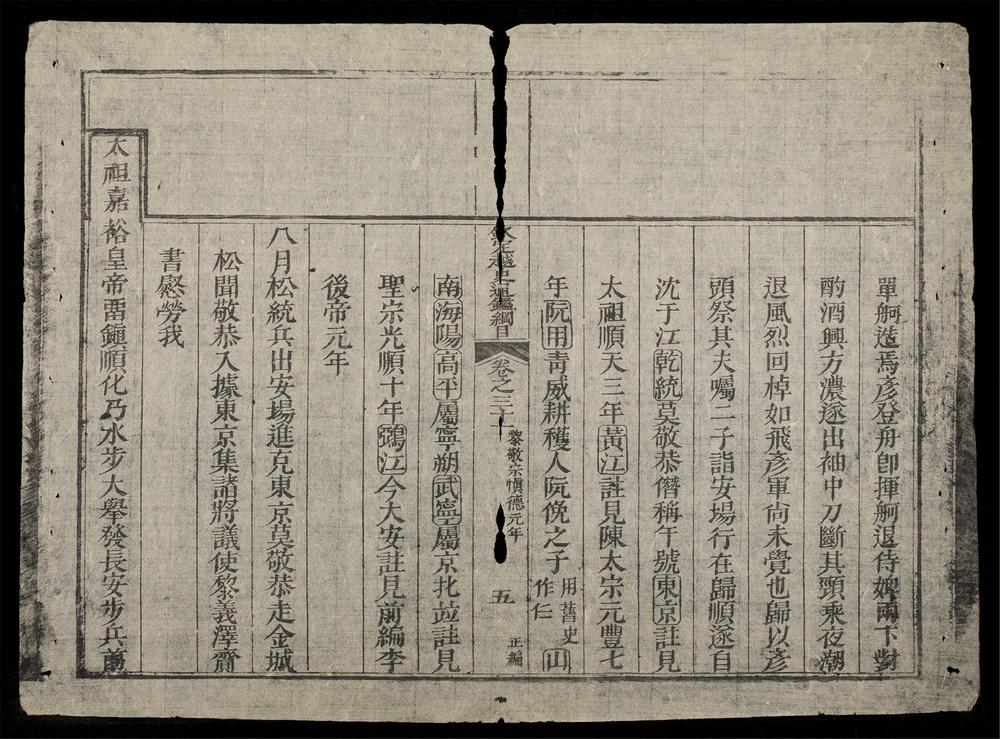 單舸造焉彥登舟卽揮舸退侍婢兩下對
酌酒興方濃遂出袖中刀斷其頸乘夜潮
退風烈回棹如飛彥軍尙未覺也歸以彥
頭祭其夫囑二子詣安場行在歸順遂自
沈于江乾統莫敬恭僭稱年號東京註見
太祖順天三年黃江註見陳太宗元豐七
年阮用靑威耕穫人阮俛之子用舊史作仁山
南海陽高平屬寧朔武寧屬京北竝註見
聖宗光順十年鵶江今大安註見前編李
後帝元年
欽定越史通鑑綱目
卷之三十一
黎敬宗愼德元年
五
正編
八月松統兵出安場進克東京莫敬恭走金城
松聞敬恭入據東京集諸將議使黎義澤齎
書慰勞我
太祖嘉裕皇帝畱鎭順化乃水步大舉發長安步兵萬